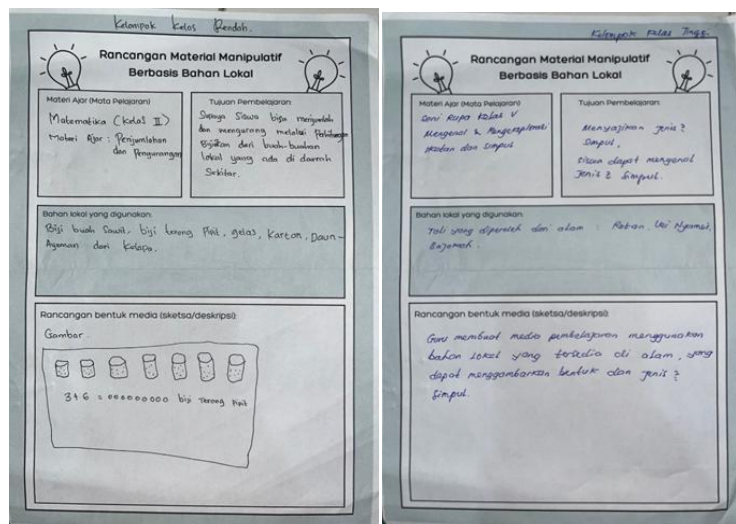 Kelompok Kelas Rendah.
Rancangan Material Manipulatif
Berbasis Bahan Lokal
Materi Ajar (Mata Pelajaran)
Matematika (Kelas II)
Materi Ajar : Penjumlahan
dan Pengurangan
Tujuan Pembelajaran:
Supaya Siswa bisa menjumlah
dan mengurang melalui Perhitungan
Bijian dari buah-buahan
lokal yang ada di daerah
Sekitar.
Bahan lokal yang digunakan:
Biji buah Sawit, biji terong Pipit, gelas, Karton, Daun-
Ayaman dari Kelapa.
Rancangan bentuk media (sketsa/deskripsi):
Gambar.
3+6 = 000000000 biji Terong Pipit
Kelompok Kelas Tinggi.
Rancangan Material Manipulatif
Berbasis Bahan Lokal
Materi Ajar (Mata Pelajaran)
Seni Rupa Kelas V
Mengenal & Mengeksplorasi
ikatan dan simpul
Tujuan Pembelajaran:
Menyajikan jenis2
simpul.
Siswa dapat mengenal
Jenis2 Simpul.
Bahan lokal yang digunakan:
Tali yang diperoleh dari alam : Rotan,
Rancangan bentuk media (sketsa/deskripsi):
Guru membuat media pembelajaran menggunakan
bahan lokal yang tersedia di alam, yang
dapat menggambarkan bentuk dan jenis2
Simpul.